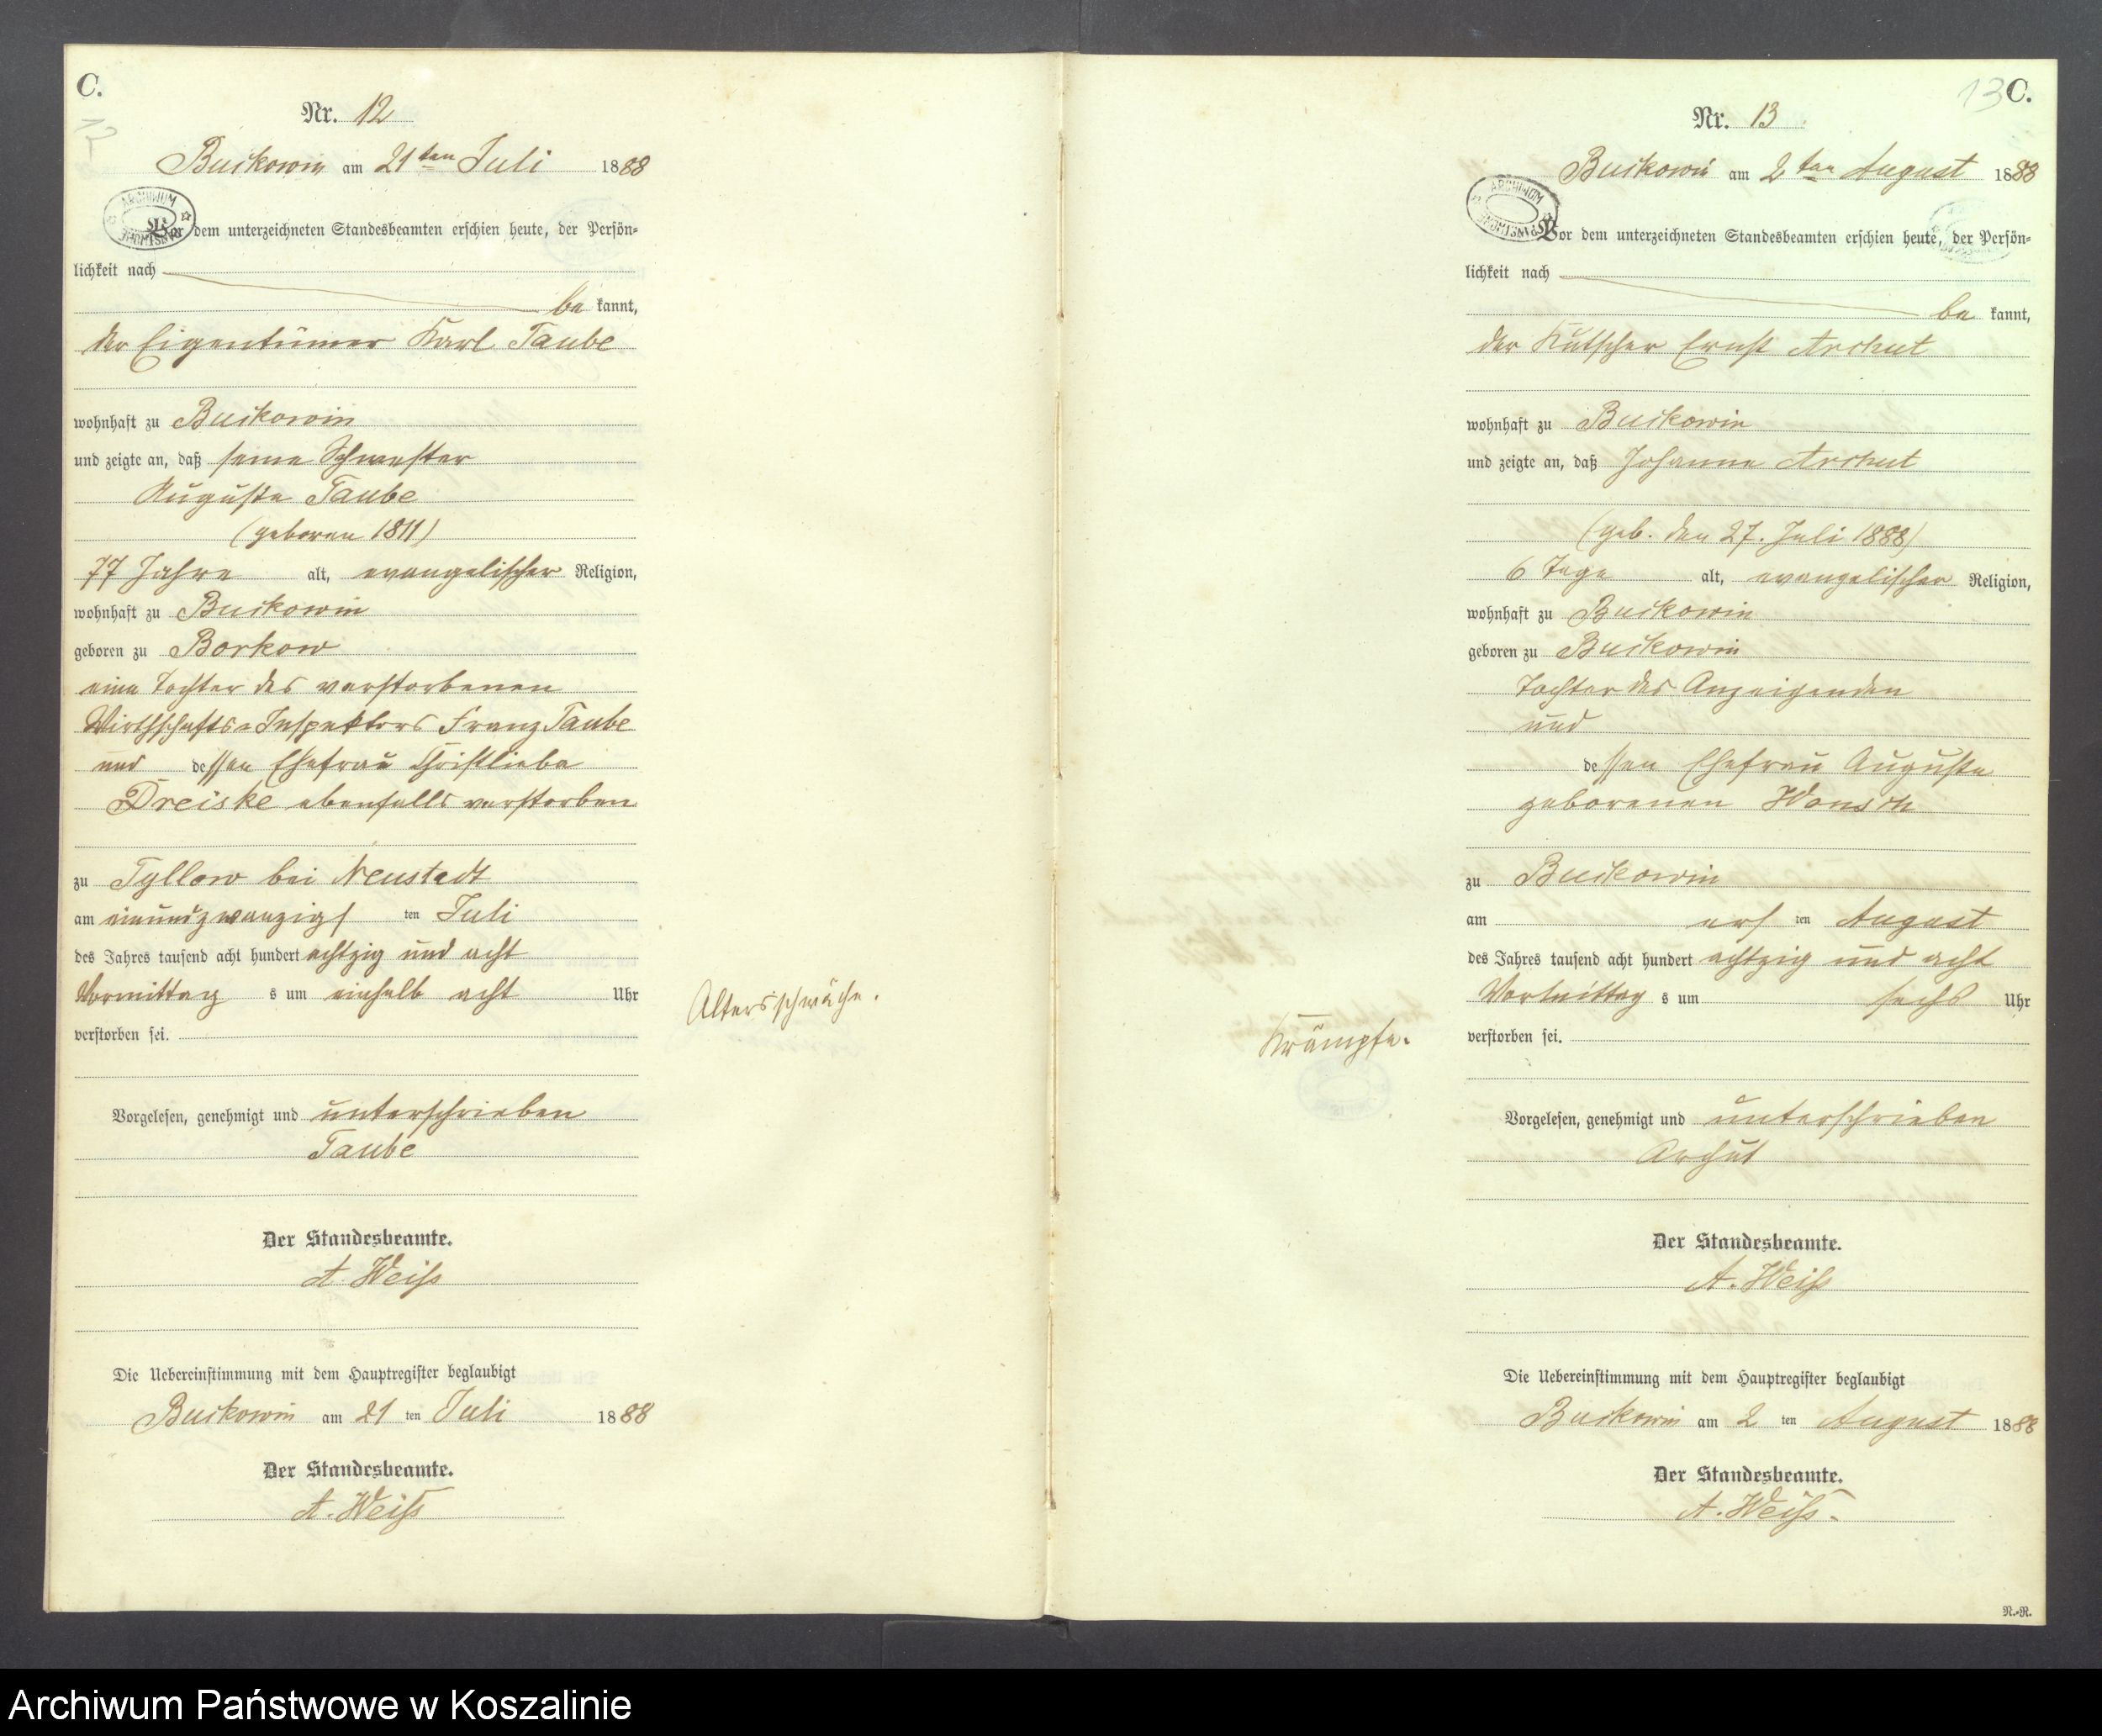 C.
Nr. 12
Buckowin am 21ten Juli 1888
Vor dem unterzeichneten Standesbeamten erschien heute, der Persön-
lichkeit nach
be kannt,
der Eigentümer Karl Taube
wohnhaft zu Buckowin
und zeigte an, daß seine Schwester
Auguste Taube
(geboren 1811)
77 Jahre alt, evangelischer Religion,
wohnhaft zu Buckowin
geboren zu Borkow
eine Tochter des verstorbenen
Wirthschafts-Inspektors Franz Taube
und dessen Ehefrau Christliebe
Dreiske ebenfalls verstorben
zu Tyllow bei Neustadt
am einundzwanzigs ten Juli
des Jahres tausend acht hundert achtzig und acht
Vormittag s um einhalb acht Uhr
verstorben sei.
Altersschwäche.
Vorgelesen, genehmigt und unterschrieben
Taube
Der Standesbeamte.
A. Weiß
Die Uebereinstimmung mit dem Hauptregister beglaubigt
Buckowin am 21 ten Juli 1888
Der Standesbeamte.
A. Weiß
13 C.
Nr. 13
Buckowin am 2ten August 1888
Vor dem unterzeichneten Standesbeamten erschien heute, der Persön-
lichkeit nach
be kannt,
der Kutscher Ernst Archut
wohnhaft zu Buckowin
und zeigte an, daß Johanne Archut
(geb. den 27. Juli 1888)
6 Tage alt, evangelischer Religion,
wohnhaft zu Buckowin
geboren zu Buckowin
Tochter des Anzeigenden
und
dessen Ehefrau Auguste
geborenen Wonsch
zu Buckowin
am ers ten August
des Jahres tausend acht hundert achtzig und acht
Vormittag s um sechs Uhr
verstorben sei.
Krämpfe.
Vorgelesen, genehmigt und unterschrieben
Archut
Der Standesbeamte.
A. Weiß
Die Uebereinstimmung mit dem Hauptregister beglaubigt
Buckowin am 2 ten August 1888
Der Standesbeamte.
A. Weiß.
N.-R.
Archiwum Państwowe w Koszalinie